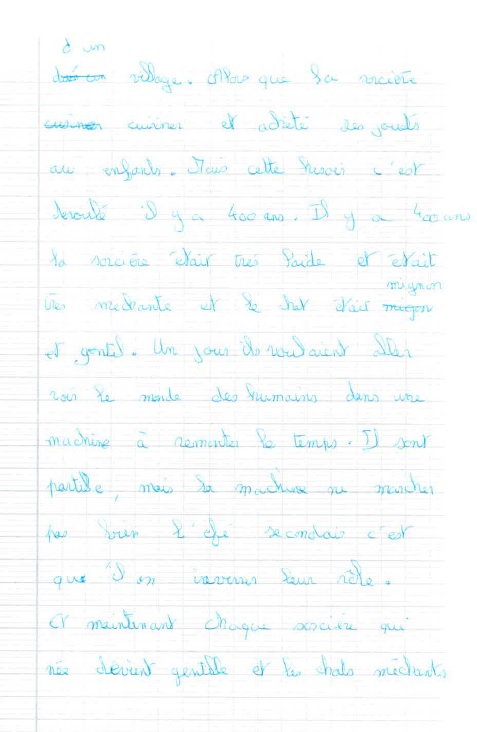 d un
village. Alors que la sorcière
cuisiner et acheté des jouets
au enfants. Mais cette histoir c'est
deroulé il y a 400 ans. Il y a 400 ans
la sorcière était très laide et était
mignon
très mechante et le chat était
et gentil. Un jour ils voulaient aller
voir le monde des humains dans une
machine à remonter le temps. Il sont
partile, mais la machine ne marcher
pas bien l'éfé secondair c'est
que il on inverser leur rôle.
Et maintenant chaque sorcière qui
née devient gentille et les chats méchants